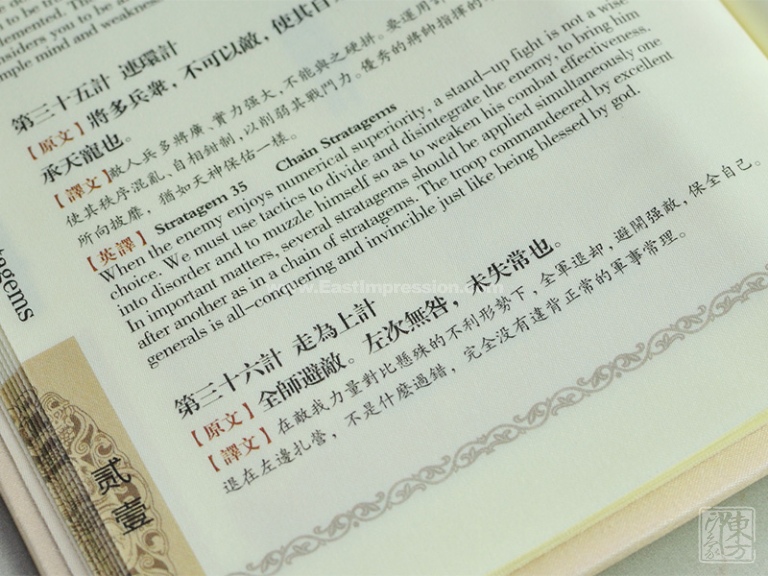 to be tr
mented. The
nsiders you to be a
mple mind and weakness
第三十五計 連環計
【原文】將多兵衆，不可以敵，使其自
承天寵也。
【譯文】敵人兵多將廣、實力强大，不能與之硬拼。要運用
使其秩序混亂、自相鉗制，以削弱其戰鬥力。優秀的將帥指揮的
所向披靡，猶如天神保佑一樣。
【英譯】 Stratagem 35 Chain Stratagems
When the enemy enjoys numerical superiority, a stand-up fight is not a wise
choice. We must use tactics to divide and disintegrate the enemy, to bring him
into disorder and to muzzle himself so as to weaken his combat effectiveness.
In important matters, several stratagems should be applied simultaneously one
after another as in a chain of stratagems. The troop commandeered by excellent
generals is all-conquering and invincible just like being blessed by god.
第三十六計 走為上計
【原文】全師避敵。左次無咎，未失常也。
【譯文】在敵我力量對比懸殊的不利形勢下，全軍退却，避開强敵，保全自己。
退在左邊扎營，不是什麼過錯，完全没有違背正常的軍事常理。
tagems
贰壹
www.EastImpression.com
東方